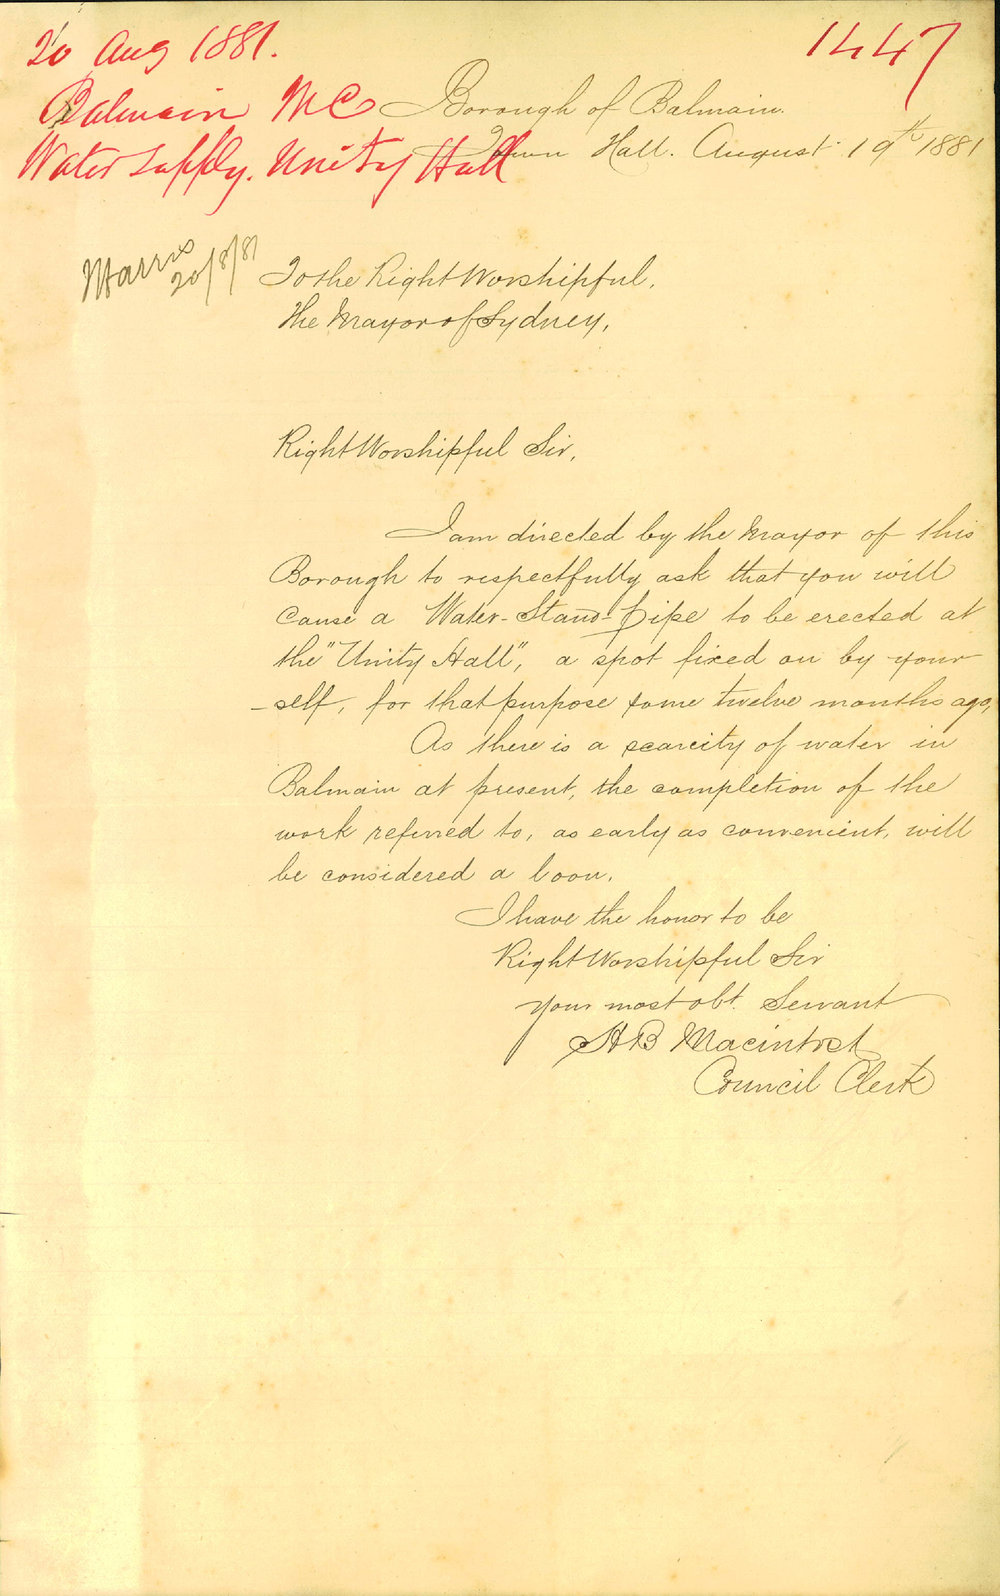 20 Aug 1881.
1447
Balmain MC
Water supply. Unity Hall
Borough of Balmain.
Town Hall. August 19th 1881
20/8/81
To the Right Worshipful,
the Mayor of Sydney,
Right Worshipful Sir,
I am directed by the Mayor of this
Borough to respectfully ask that you will
cause a Water-Stand-pipe to be erected at
the "Unity Hall", a spot fixed on by your
-self, for that purpose some twelve months ago,
As there is a scarcity of water in
Balmain at present, the completion of the
work referred to, as early as convenient, will
be considered a boon.
I have the honor to be
Right Worshipful Sir
your most obt. Servant
Macintosh
Council Clerk